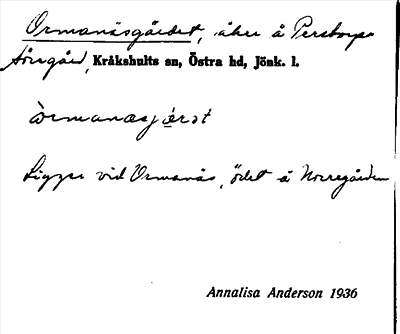 Ormanäsgärdet, åker å Perstorps
Sörgård, Kråkshults sn, Östra hd, Jönk. l.
òrmanæsjærət
Ligger vid Ormanäs, ödet å Norregården
Annalisa Anderson 1936